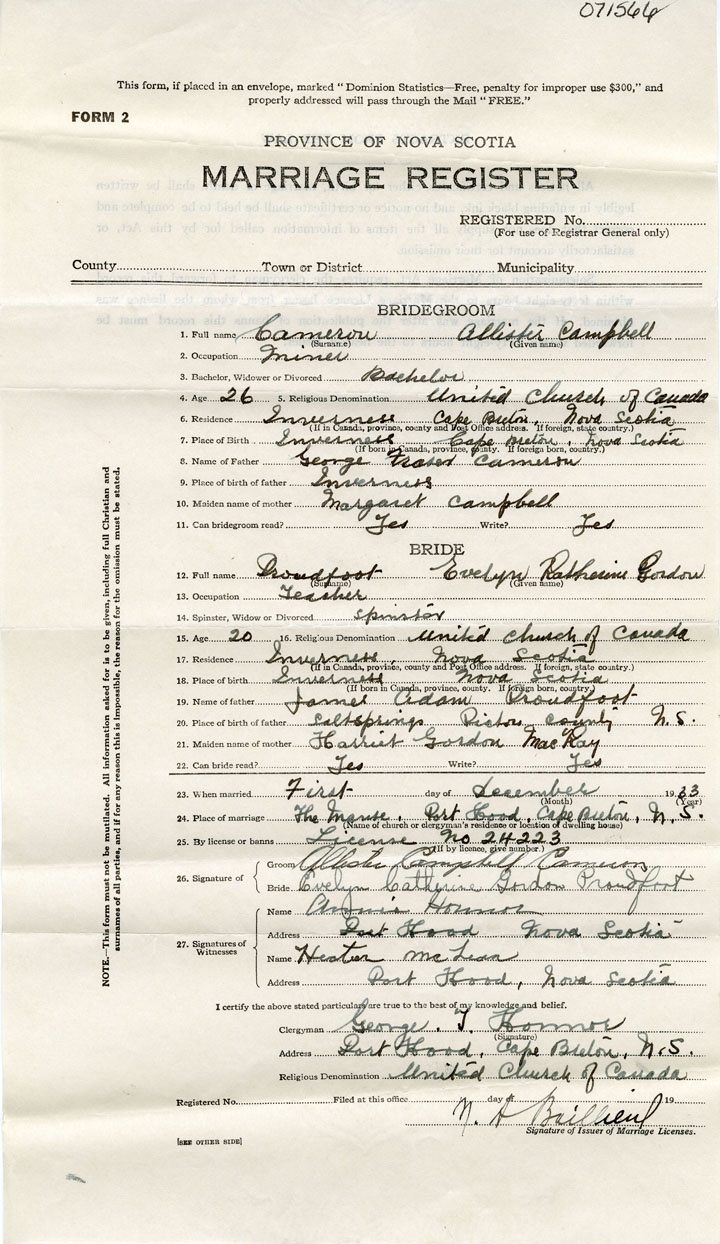 071566
This form, if placed in an envelope, marked "Dominion Statistics—Free, penalty for improper use $300," and
properly addressed will pass through the Mail "FREE."
FORM 2
PROVINCE OF NOVA SCOTIA
MARRIAGE REGISTER
REGISTERED No.
(For use of Registrar General only)
County Town or District Municipality
BRIDEGROOM
1. Full name Cameron Allister Campbell
(Surname) (Given name)
2. Occupation Miner
3. Bachelor, Widower or Divorced Bachelor
4. Age 26 5. Religious Denomination United Church of Canada
6. Residence Inverness Cape Breton, Nova Scotia
(If in Canada, province, county and Post Office address. If foreign, state country.)
7. Place of Birth Inverness Cape Breton, Nova Scotia
(If born in Canada, province, county. If foreign born, country.)
8. Name of Father George Fraser Cameron
9. Place of birth of father Inverness
10. Maiden name of mother Margaret Campbell
11. Can bridegroom read? Yes Write? Yes
BRIDE
12. Full name Proudfoot Evelyn Katherine Gordon
(Surname) (Given name)
13. Occupation Teacher
14. Spinster, Widow or Divorced Spinster
15. Age 20 16. Religious Denomination United Church of Canada
17. Residence Inverness Nova Scotia
(If in Canada, province, county and Post Office address. If foreign, state country.)
18. Place of birth Inverness Nova Scotia
(If born in Canada, province, county. If foreign born, country.)
19. Name of father James Adam Proudfoot
20. Place of birth of father Saltsprings Pictou County N.S.
21. Maiden name of mother Harriet Gordon MacKay
22. Can bride read? Yes Write? Yes
23. When married First day of December 1933
(Month) (Year)
24. Place of marriage The Manse, Port Hood, Cape Breton, N.S.
(Name of church or clergyman's residence or location of dwelling house)
25. By license or banns License No 24223
(If by licence, give number.)
26. Signature of
Groom Allister Campbell Cameron
Bride Evelyn Catherine Gordon Proudfoot
27. Signatures of Witnesses
Name Honnor
Address Port Hood Nova Scotia
Name Hester McLean
Address Port Hood, Nova Scotia
I certify the above stated particulars are true to the best of my knowledge and belief.
Clergyman George. T. Honnor
(Signature)
Address Port Hood, Cape Breton, N.S.
Religious Denomination United Church of Canada
Registered No. Filed at this office day of 19
N. A
Signature of Issuer of Marriage Licenses.
[SEE OTHER SIDE]
NOTE.—This form must not be mutilated. All information asked for is to be given, including full Christian and
surnames of all parties, and if for any reason this is impossible, the reason for the omission must be stated.